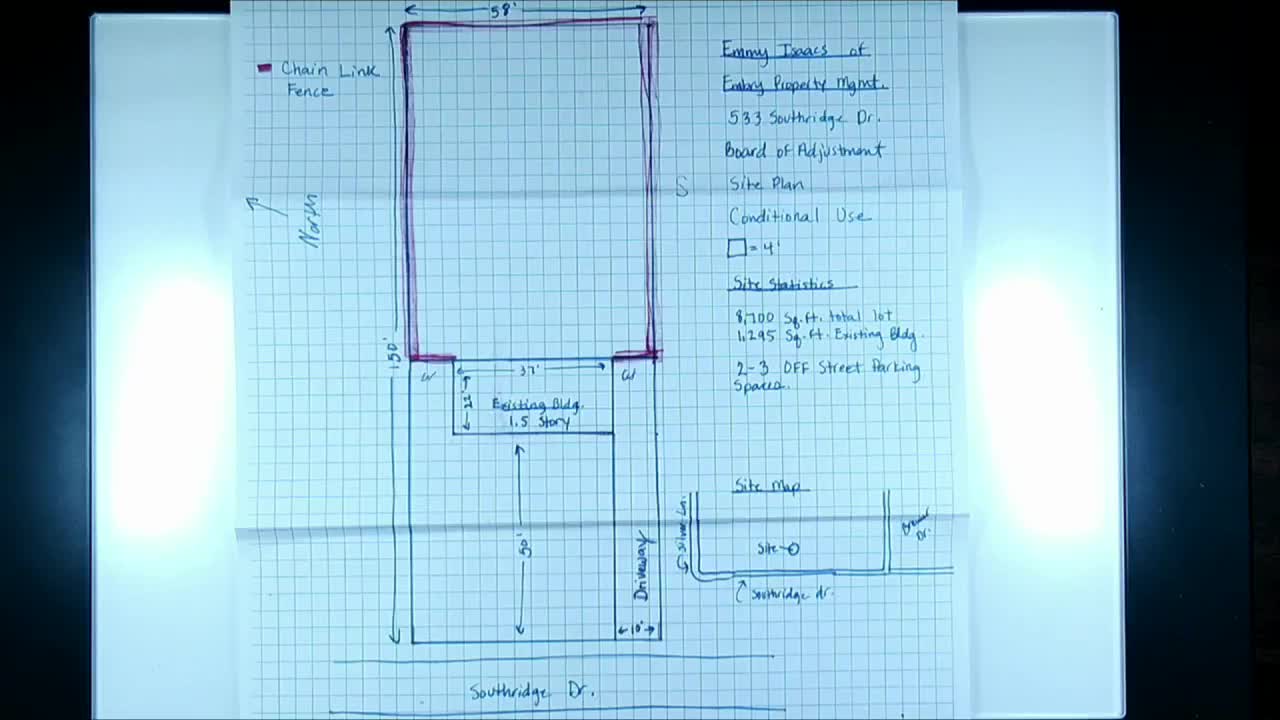 58'
Chain Link
Fence
North
150'
Emmy Isaacs of
Embry Property Mgmt.
533 Southridge Dr.
Board of Adjustment
Site Plan
Conditional Use
= 4'
Site Statistics
8,700 Sq.ft. total lot
1,295 Sq.ft. Existing Bldg.
2-3 OFF Street Parking
Spaces.
37'
Existing Bldg.
1.5 Story
50'
Driveway
10'
Southridge Dr.
Site Map
Silver Ln.
Site
Dr.
Southridge dr.